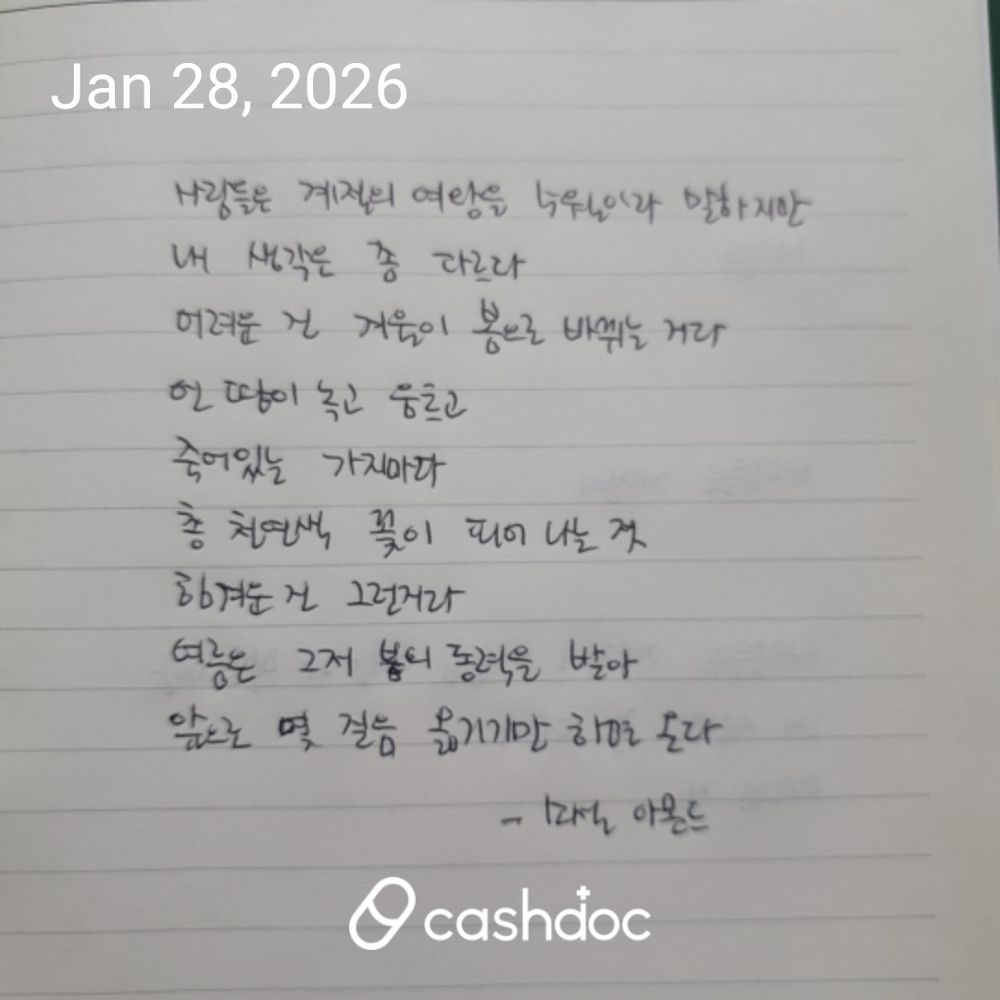 Jan 28, 2026
사람들은 계절의 여왕을 누워보이라 말하지만
내 생각은 좀 다르다
어려운 건 겨울이 봄으로 바뀌는 거라
언 땅이 녹고 움트고
죽어있는 가지마다
총 천연색 꽃이 피어 나는 것
힘겨운 건 그런거라
여름은 그저 봄의 동력을 받아
앞으로 몇 걸음 옮기기만 하면 온다
- 아몬드
cashdoc